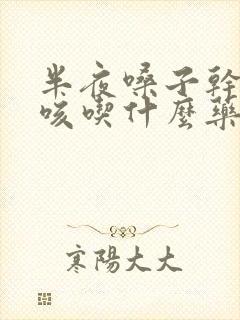 半夜嗓子幹
咳喫什麼藥
寒陽大大